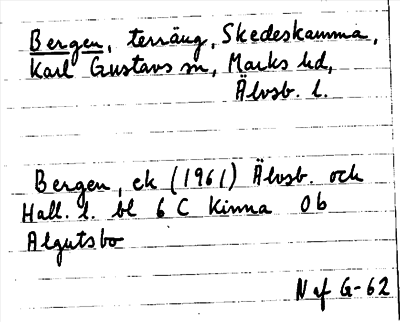 Bergen, terräng, Skedeskamma,
Karl Gustavs sn, Marks hd,
Älvsb. l.
Bergen, ek (1961) Älvsb. och
Hall. l. bl 6 C Kinna 0b
Algutsbo
N af G-62